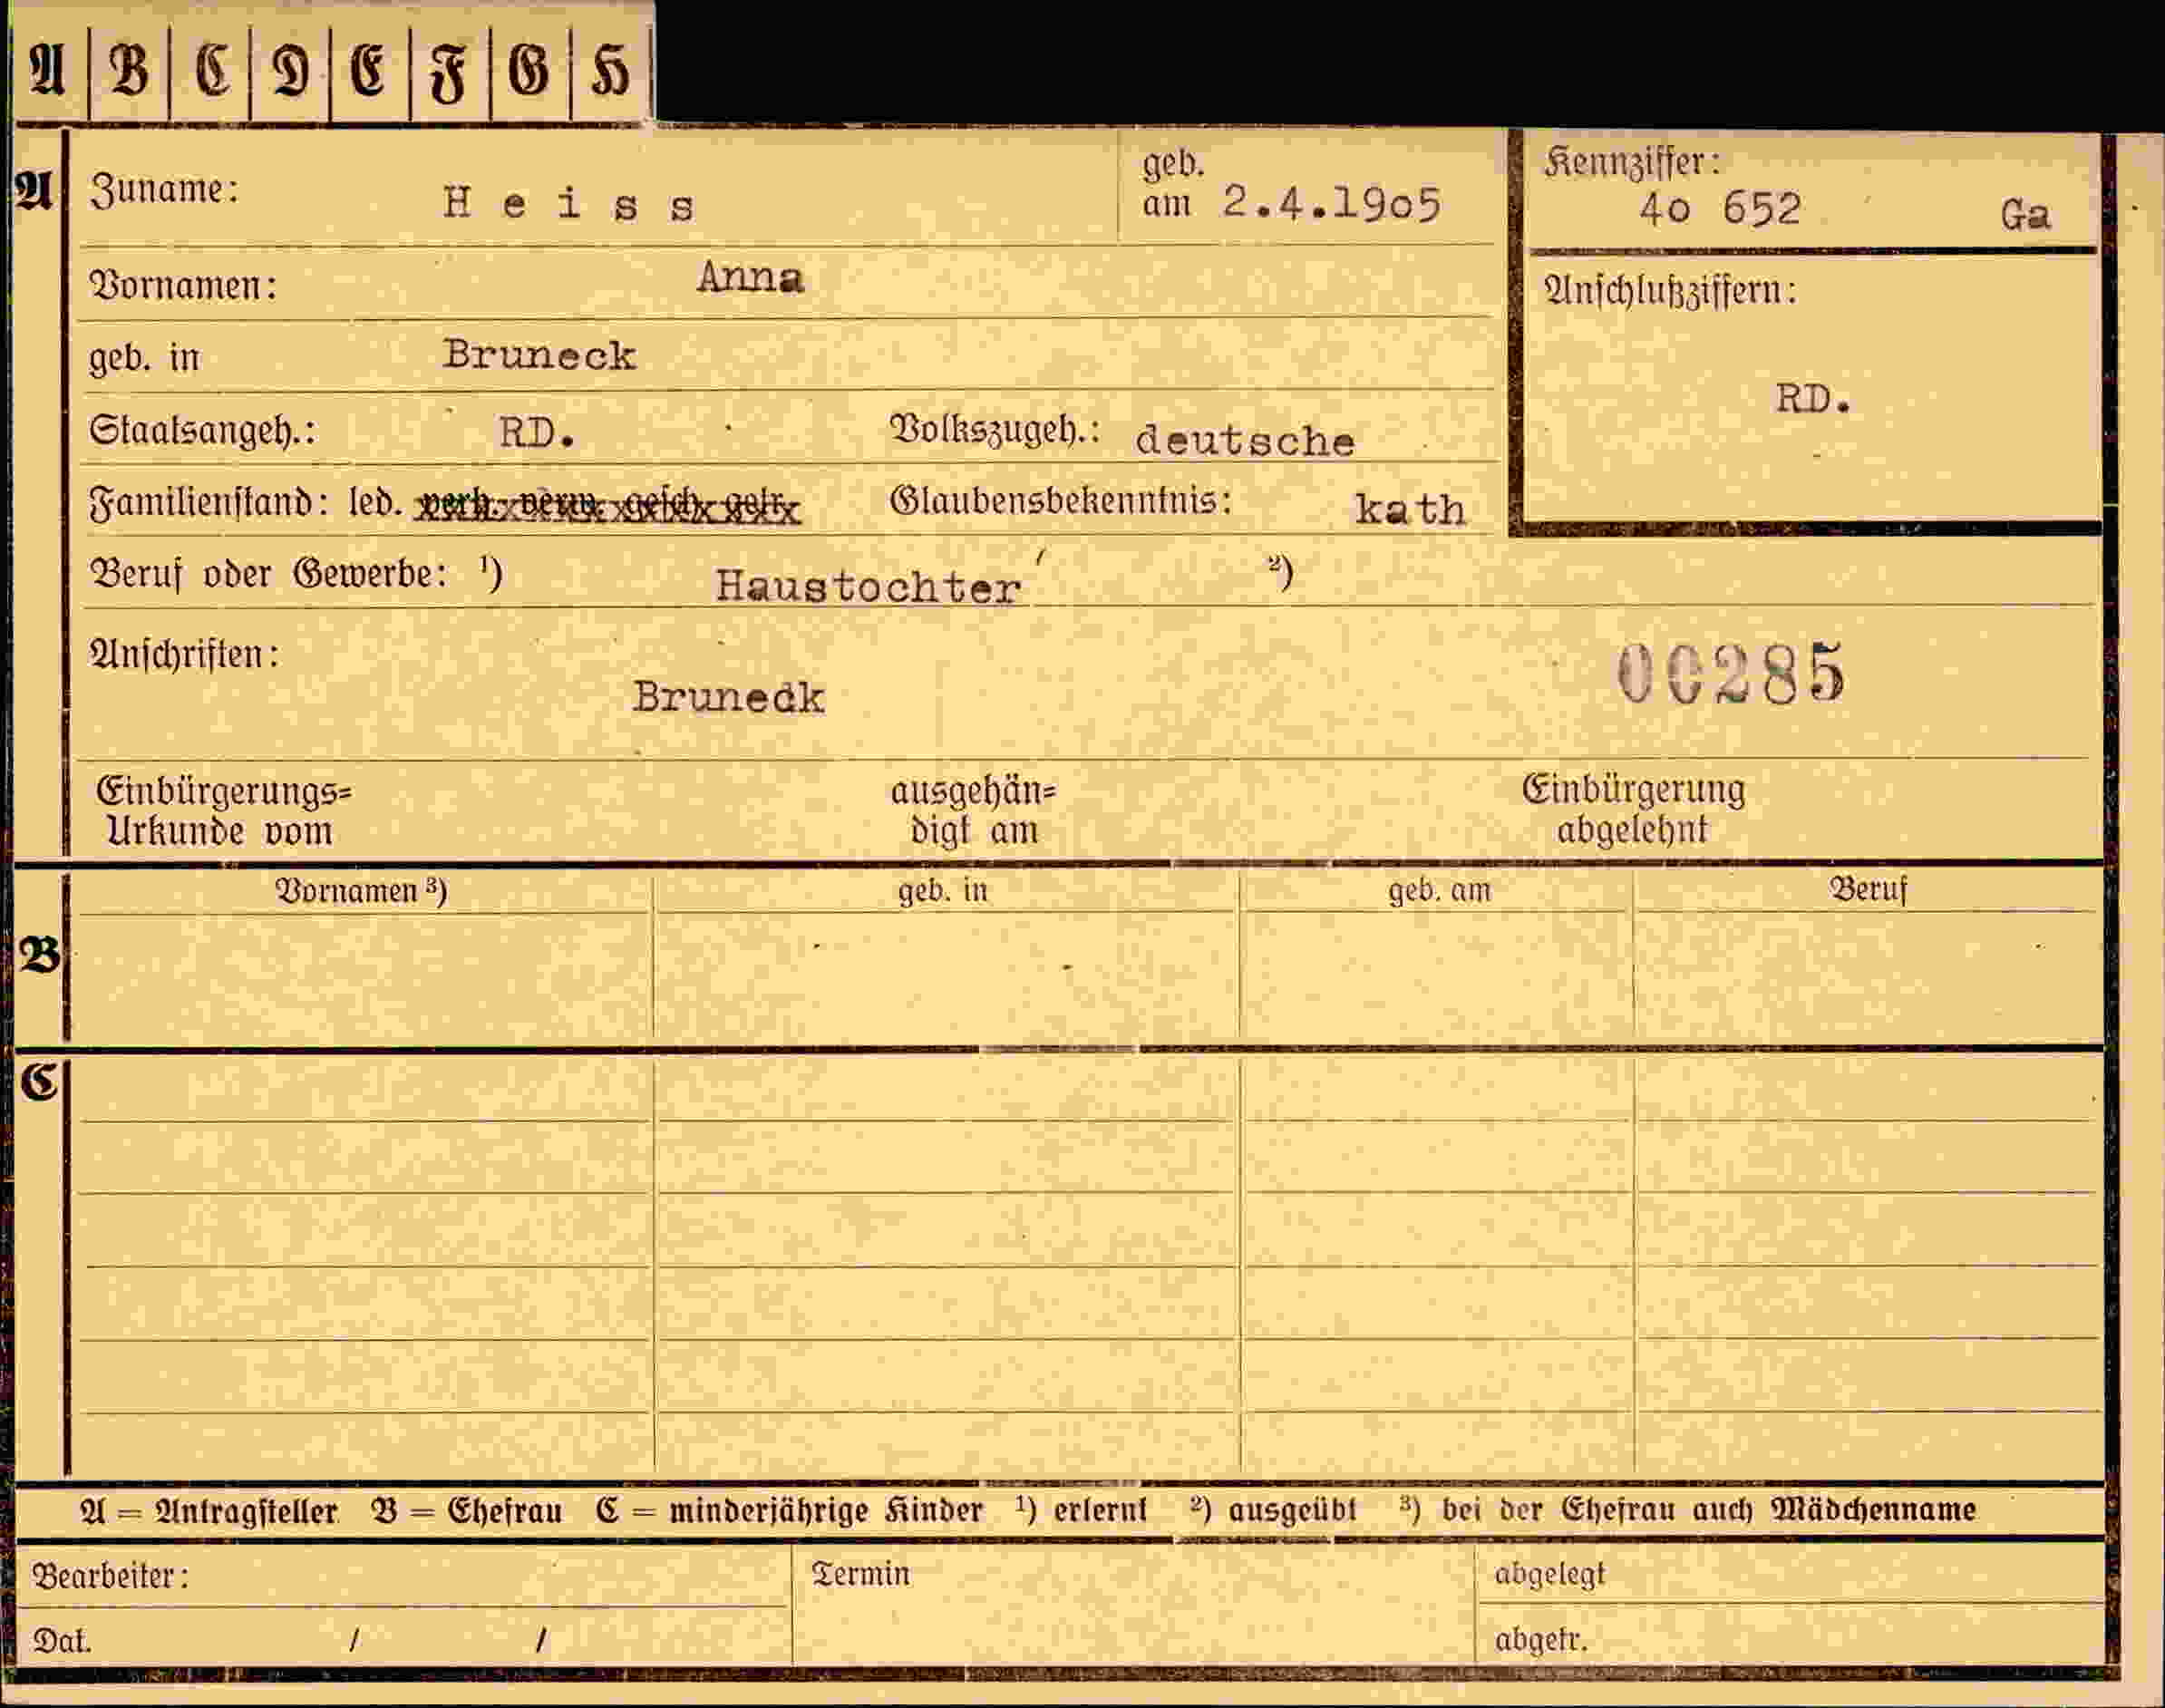 A B C D E F G H
A Zuname: Heiss geb. am 2.4.19o5 Kennziffer: 4o 652 Ga
Vornamen: Anna Anschlußziffern:
geb. in Bruneck
RD.
Staatsangeh.: RD. Volkszugeh.: deutsche
Familienstand: led. verh. verw. gesch. getr. Glaubensbekenntnis: kath
Beruf oder Gewerbe: ¹) Haustochter ²)
Anschriften: 00285
Brunedk
Einbürgerungs= ausgehän= Einbürgerung
Urkunde vom digt am abgelehnt
Vornamen ³) geb. in geb. am Beruf
B
C
A = Antragsteller B = Ehefrau C = minderjährige Kinder ¹) erlernt ²) ausgeübt ³) bei der Ehefrau auch Mädchenname
Bearbeiter: Termin abgelegt
Dat. / / abgetr.